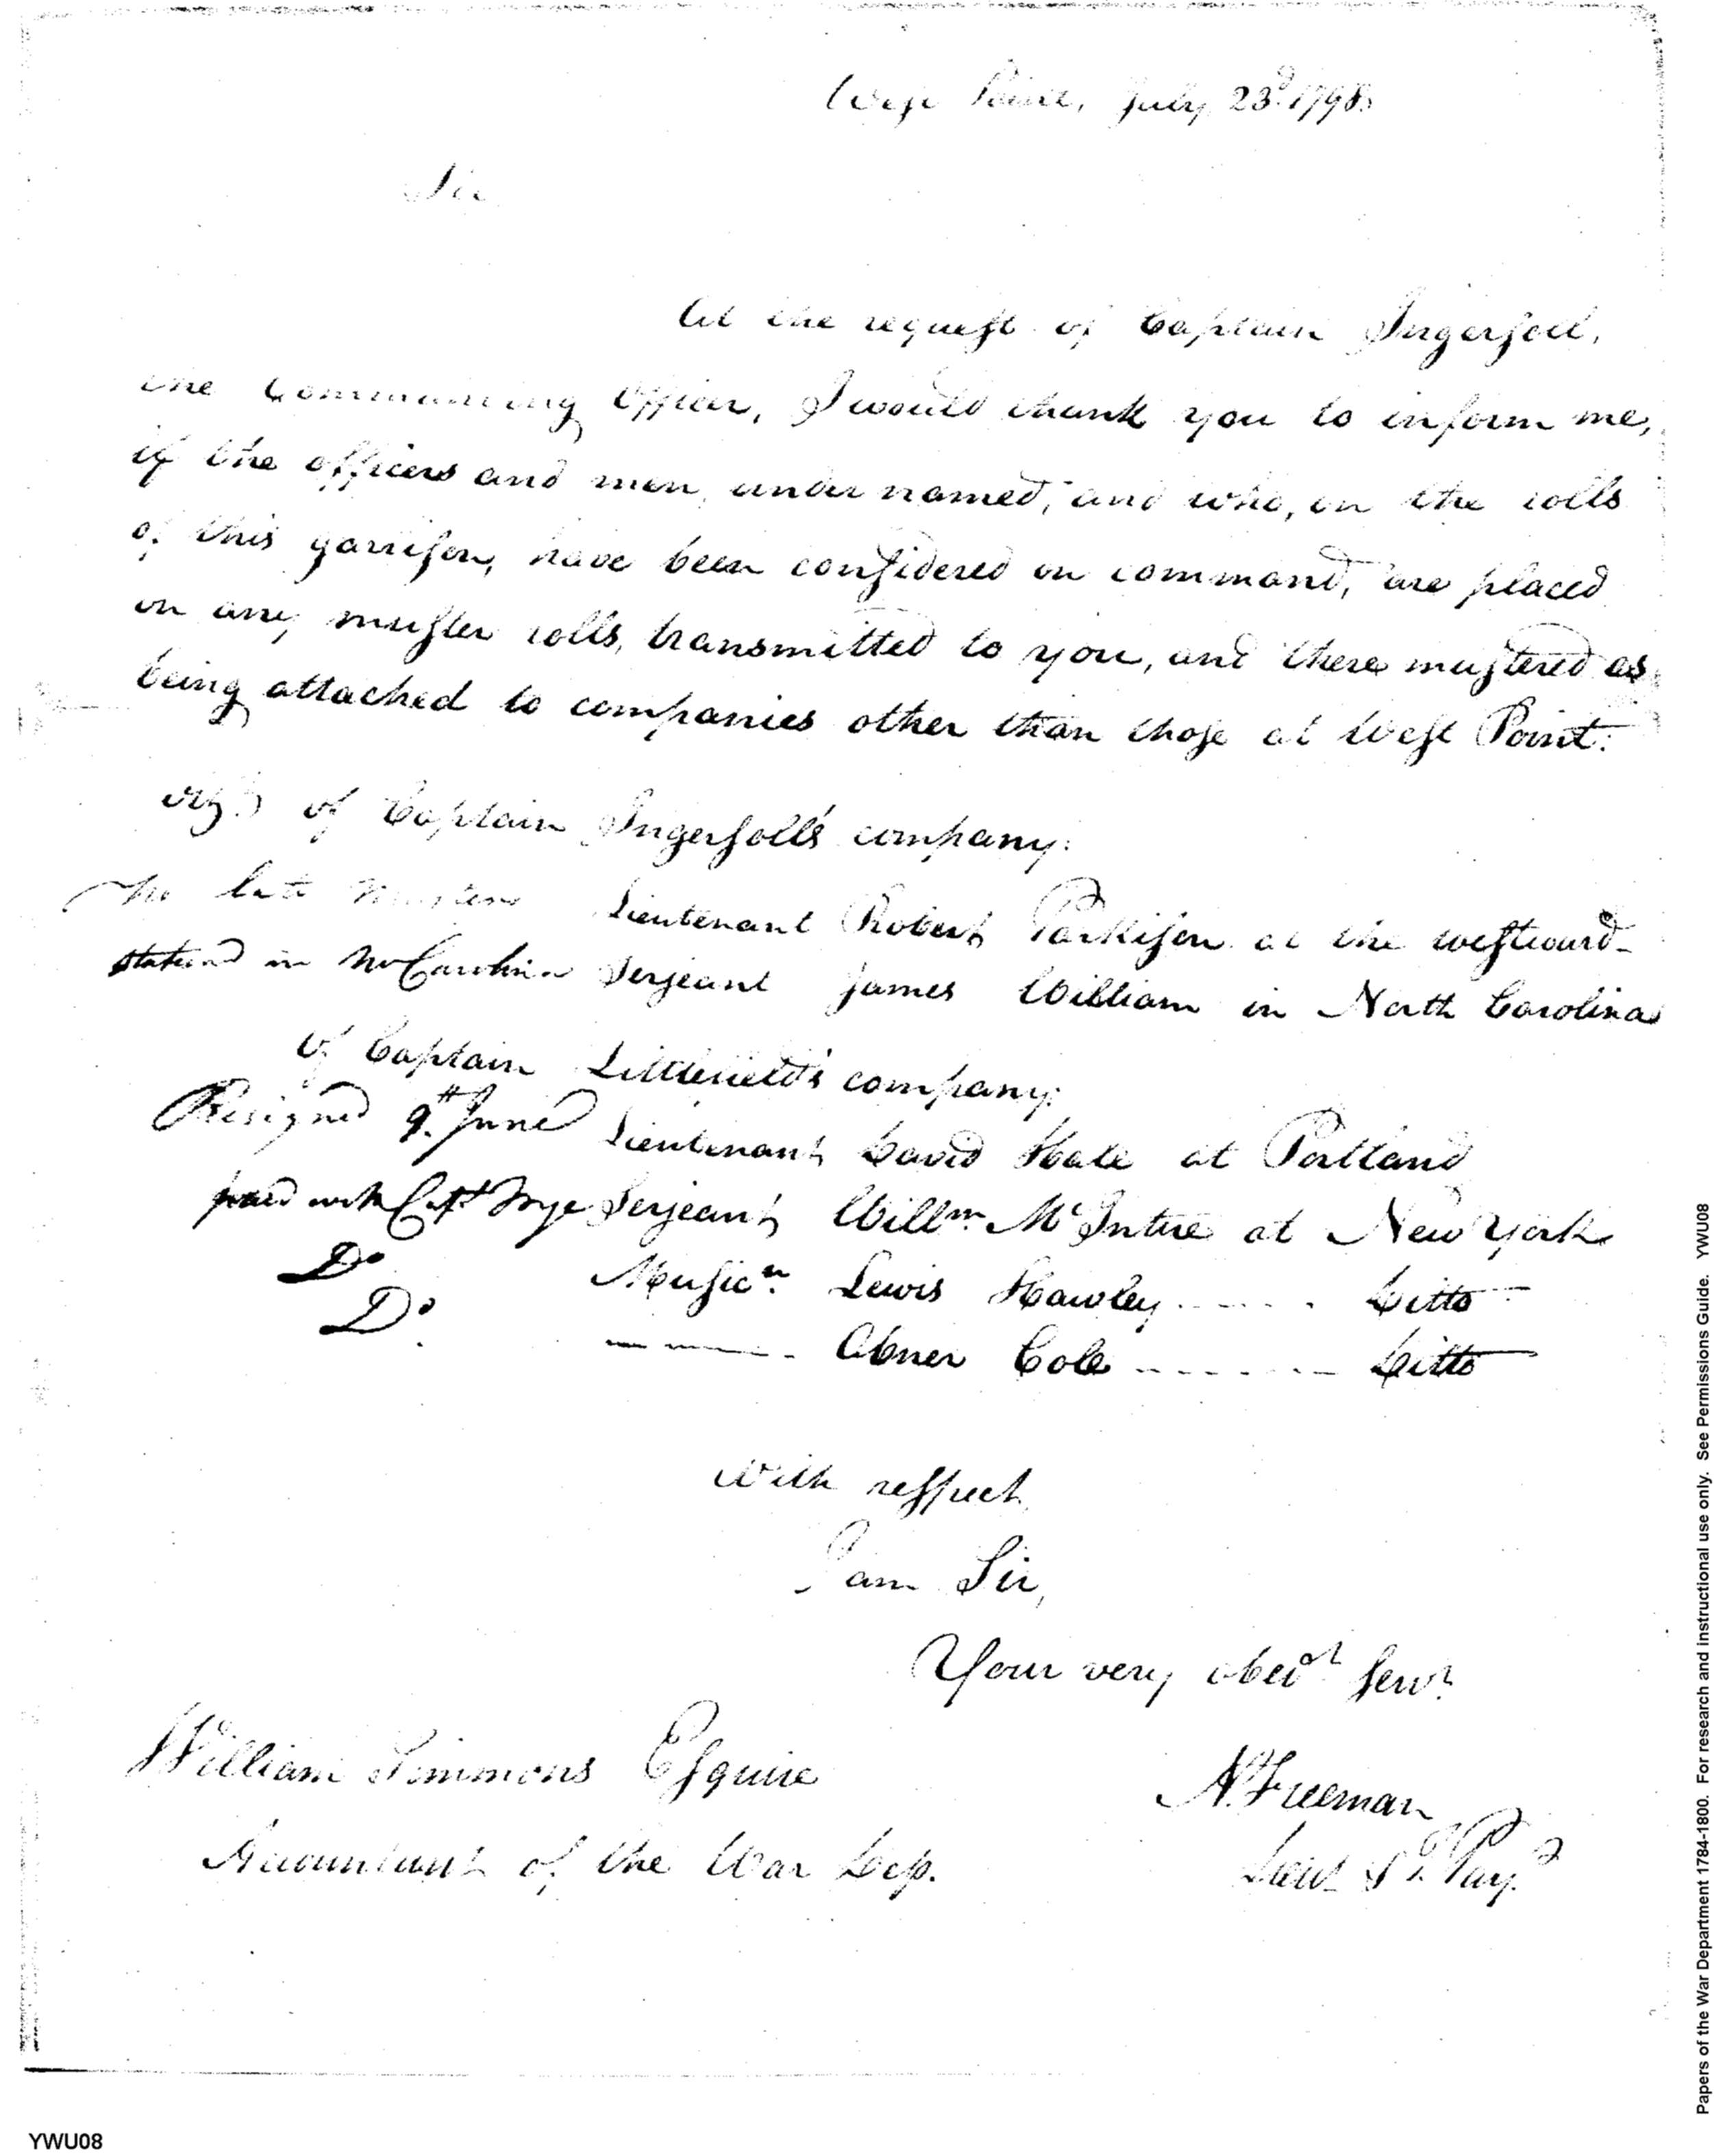 West Point, July 23d. 1798.
Sir
At the request of Captain Ingersoll,
the Commanding Officer, I would thank you to inform me,
if the officers and men, under named, and who, on the rolls
of this garrison, have been considered on command, are placed
on any muster rolls, transmitted to you, and there mustered as
being attached to companies other than those at West Point.
viz.) of Captain Ingersoll's company:
No late Musters Lieutenant Robert Parkison at the westward
stationed in No Carolina Serjeant James William in North Carolina
of Captain Littlefield's company:
Resigned 9th. June Lieutenant David Hale at Portland
paid with Capt Frye Serjeant Willm. McIntire at New York
Do Musicn. Lewis Hawley ..... Ditto
Do. ---- Abner Cole ------- Ditto
With respect
I am Sir,
Your very obedt Servt.
William Simmons Esquire
N. Freeman
Accountant of the War Dep.
Lieut & Pay.
Papers of the War Department 1784-1800. For research and instructional use only. See Permissions Guide. YWU08
YWU08